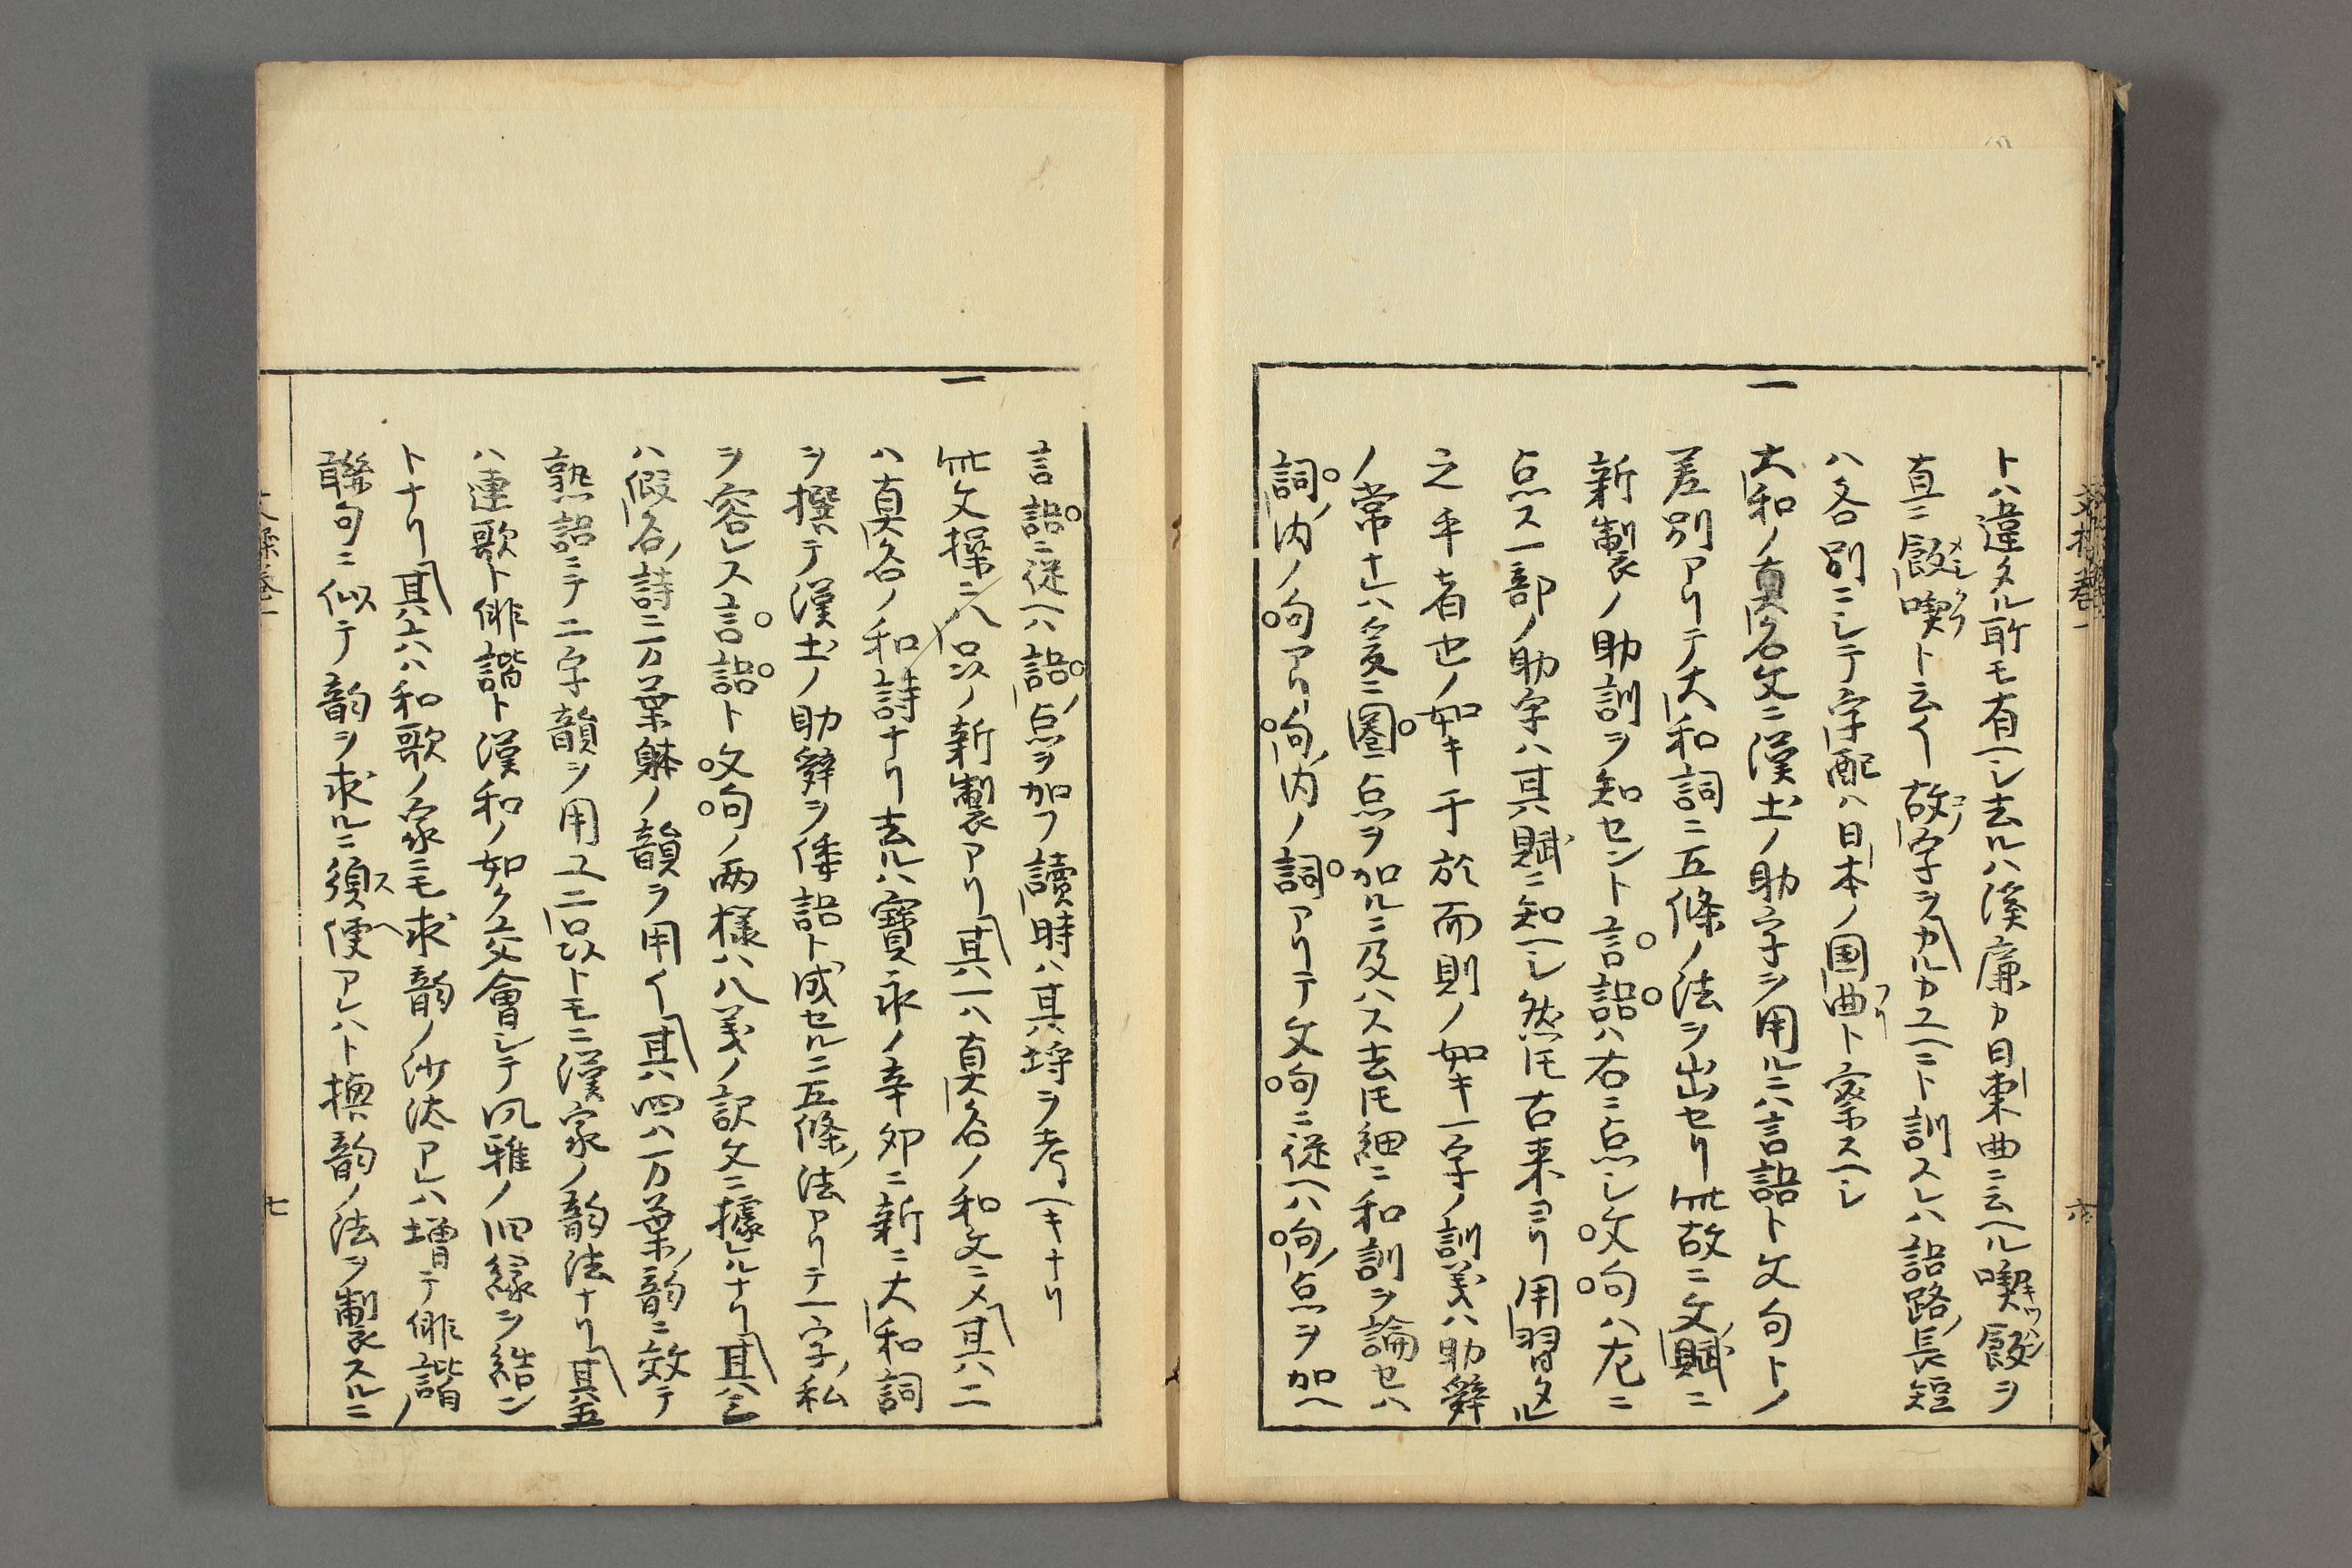 トハ違タル所モ有ヘシ去ルハ溪廉カ日東曲ニ云ヘル喫飯ヲ
直ニ飯喫ト云イ故ノ字ヲカルカユヘニト訓スレハ語路ノ長短
ハ各別ニシテ字配ハ日本ノ国曲ト察スヘシ
一 大和ノ真名文ニ漢土ノ助字ヲ用ルニハ言語ト文句トノ
差別アリテ大和詞ニ五條ノ法ヲ出セリ此故ニ文賦ニ
新製ノ助訓ヲ知セント言語ハ右ニ点シ文句ハ左ニ
点ス一部ノ助字ハ其賦ニ知ヘシ然トモ古来ヨリ用習タル
之乎者也ノ如キ于於而則ノ如キ一字ノ訓義ハ助辞
ノ常ナレハ爰ニ圏点ヲ加ルニ及ハス去トモ細ニ和訓ヲ論セハ
詞ノ内ノ句アリ句ノ内ノ詞アリテ文句ニ従ヘハ句ノ点ヲ加ヘ
言語ニ従ヘハ語ノ点ヲ加フ讀時ハ其埒ヲ考ヘキナリ
一 此文操ニハ品々ノ新製アリ其一ハ真名ノ和文ニメ其二
ハ真名ノ和詩ナリ去ルハ寳永ノ辛卯ニ新ニ大和詞
ヲ撰テ漢土ノ助辞ヲ倭語ト成セルニ五條ノ法アリテ一字ノ私
ヲ容レス言語ト文句ノ両様ハ八義ノ訳文ニ據レルナリ其三
ハ假名ノ詩ニ万葉躰ノ韻ヲ用イ其四ハ万葉ノ韵ニ效テ
熟語ニテ二字韻ヲ用ユ二品トモニ漢家ノ韵法ナリ其五
ハ連歌ト俳諧ト漢和ノ如ク交會シテ風雅ノ旧縁ヲ結ン
トナリ其六ハ和歌ノ家ニモ求韵ノ沙汰アレハ増テ俳諧ノ
聯句ニ似テ韵ヲ求ルニ須便アレハト換韵ノ法ヲ製スルニ
文操巻一
六
七